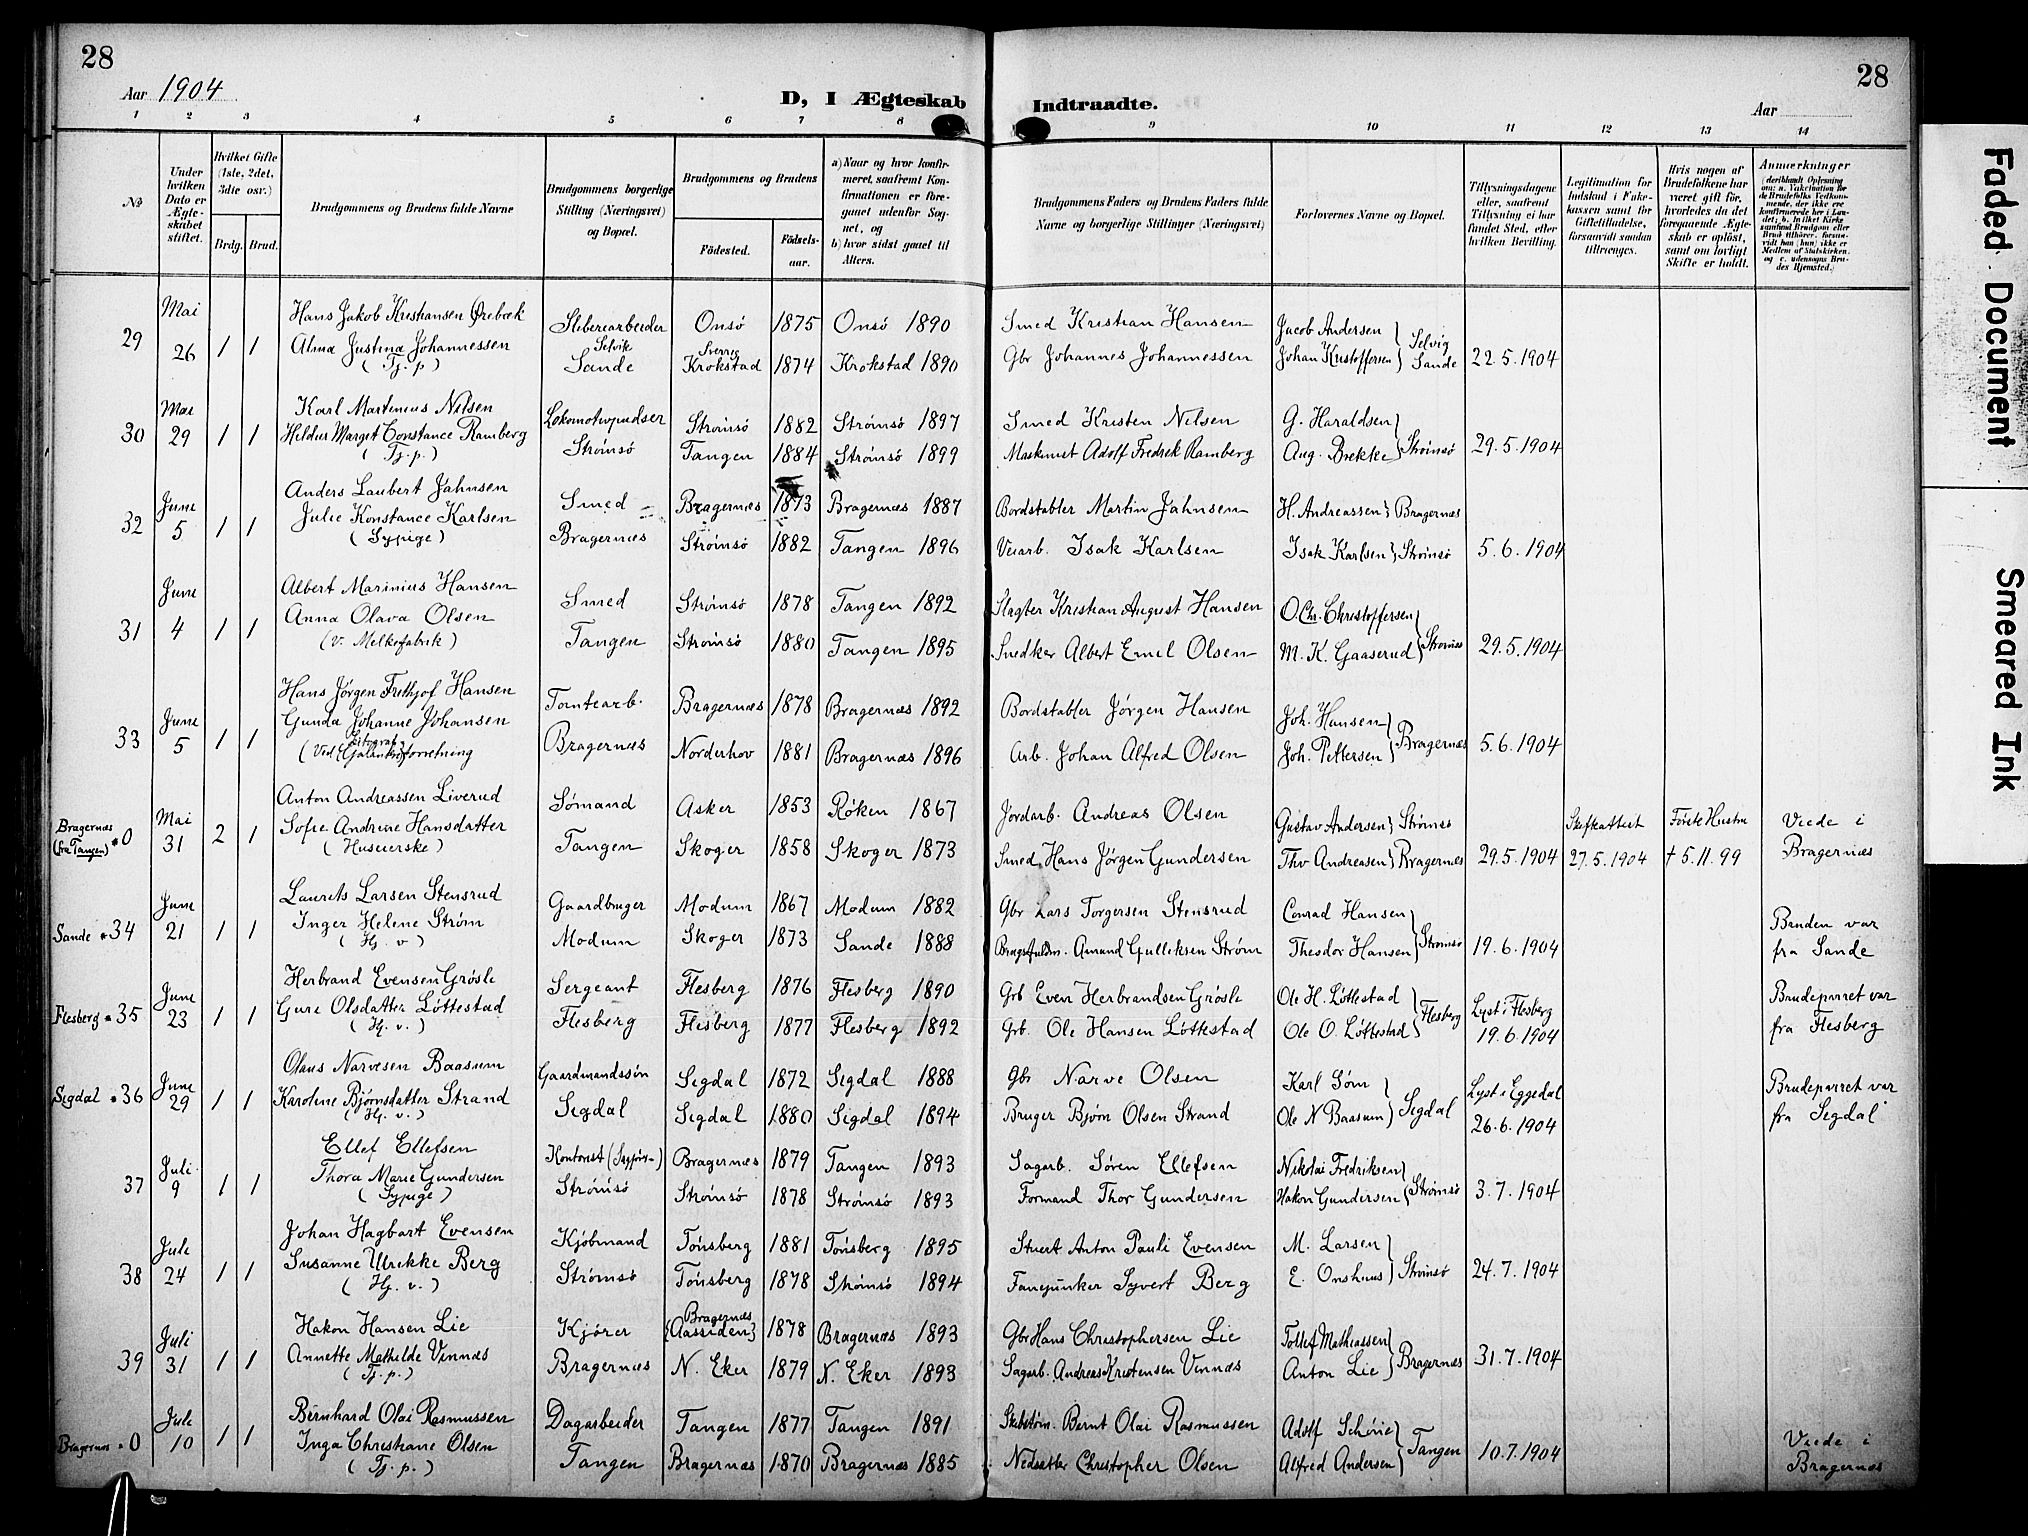 28
28
Aar 1904
D, I Ægteskab Indtraadte.
Aar
1 2 3 4 5 6 7 8 9 10 11 12 13 14
No
Under hvilken Dato er Ægteskabet stiftet.
Hvilket Gifte (1ste, 2det, 3die osv.)
Brdg. Brud.
Brudgommens og Brudens fulde Navne
Brudgommens borgerlige Stilling (Næringsvei) og Bopæl.
Brudgommens og Brudens
Födested. Födsels-aar.
a) Naar og hvor konfirmeret, saafremt Konfirmationen er foregaaet udenfor Sognet, og
b) hvor sidst gaaet til Alters.
Brudgommens Faders og Brudens Faders fulde Navne og borgerlige Stillinger (Næringsvei)
Forlovernes Navne og Bopæl.
Tillysningsdagene eller, saafremt Tillysning ei har fundet Sted, efter hvilken Bevilling.
Legitimation for Indskud i Enkekassen samt for Giftetilladelse, forsaavidt saadan tiltrænges.
Hvis nogen af Brudefolkene har været gift før, hvorledes da det foregaaende Ægteskab er opløst, samt om lovligt Skifte er holdt.
Anmærkninger
29 Mai 26 1 1
Hans Jakob Kristiansen Ørebæk
Alma Justina Johannessen
(Tj. p)
Sliberiarbeider Selvik Sande
Onsö 1875 Onsö 1890
Sverrig Krokstad 1874 Krokstad 1890
Smed Kristian Hansen
Gbr Johannes Johannessen
Jacob Andersen
Johan Kristoffersen
Selvig Sande
22.5.1904
30 Mai 29 1 1
Karl Martinius Nilsen
Hildur Marget Constance Ramberg
(Tj. p.)
Lokomotivpudser Strømsö
Strømsö 1882 Strømsö 1897
Tangen 1884 Strømsö 1899
Smed Kristen Nilsen
Maskinist Adolf Fredrek Ramberg
G. Haraldsen
Aug. Brekke
Strømsö
29.5.1904
32 June 5 1 1
Anders Laubert Jahnsen
Julie Konstance Karlsen
(Sypige)
Smed Bragernæs
Bragernæs 1873 Bragernæs 1887
Strømsö 1882 Tangen 1896
Bordstabler Martin Jahnsen
Isak Karlsen
H. Andreassen Bragernæs
Isak Karlsen Strømsö
5.6.1904
31 June 4 1 1
Albert Marinius Hansen
Anna Olava Olsen
(v. Melkefabrik)
Smed Tangen
Strømsö 1878 Tangen 1892
Strømsö 1880 Tangen 1895
Slagter Kristian August Hansen
Snedker Albert Emil Olsen
O. Chr. Christoffersen
M. K. Gaaserud
Strømsö
29.5.1904
33 June 5 1 1
Hans Jørgen Frithjof Hansen
Gunda Johanne Johansen
Tomtearb. Bragernæs
Bragernæs 1878 Bragernæs 1892
Norderhov 1881 Bragernæs 1896
Bordstabler Jørgen Hansen
Arb. Johan Alfred Olsen
Joh. Hansen
Joh. Pettersen
Bragernæs
5.6.1904
Bragernæs (fra Tangen) * 0 Mai 31 2 1
Anton Andreassen Liverud
Sofie Andrine Hansdatter
(Husierske)
Sømand Tangen
Asker 1853 Røken 1867
Skoger 1858 Skoger 1873
Jordarb. Andreas Olsen
Smed Hans Jörgen Gundersen
Gustav Andersen Strømsö
Thv Andreasen Bragernæs
29.5.1904
Skifteattest 27.5.1904
Første Hustru † 5.11.99
Viede i Bragernæs
Sande * 34 June 21 1 1
Laurits Larsen Stensrud
Inger Helene Strøm
(Hj. v)
Gaardbruger Modum
Modum 1867 Modum 1882
Skoger 1873 Sande 1888
Gbr Lars Torgersen Stensrud
Amund Gulliksen Strøm
Conrad Hansen
Theodor Hansen
Strømsö
19.6.1904
Bruden var fra Sande
Flesberg * 35 June 23 1 1
Herbrand Evensen Grøsle
Guri Olsdatter Løttestad
(Hj. v.)
Sergeant Flesberg
Flesberg 1876 Flesberg 1890
Flesberg 1877 Flesberg 1892
Grb Even Herbrandsen Grösle
Grb. Ole Hansen Løttestad
Ole H. Løttestad
Ole O. Løttestad
Flesberg
Lyst i Flesberg
19.6.1904
Brudeparret var fra Flesberg
Sigdal * 36 June 29 1 1
Olaus Narvesen Baasum
Karoline Bjørnsdatter Strand
(Hj. v.)
Gaardmandssøn Sigdal
Sigdal 1872 Sigdal 1888
Sigdal 1880 Sigdal 1894
Gbr Narve Olsen
Bruger Bjørn Olsen Strand
Karl Søm
Ole N Baasum
Sigdal
Lyst i Eggedal
26.6.1904
Brudeparret var fra Sigdal
37 Juli 9 1 1
Ellef Ellefsen
Thora Marie Gundersen
(Sypige)
Kontorist Strømsö
Bragernæs 1879 Tangen 1893
Strømsö 1878 Strømsö 1893
Sagarb. Søren Ellefsen
Formand Thor Gundersen
Nikolai Fredriksen
Hakon Gundersen
Strømsö
3.7.1904
38 Juli 24 1 1
Johan Hagbart Evensen
Susanne Ulrikke Berg
(Hj. v.)
Kjöbmand Strømsö
Tönsberg 1881 Tönsberg 1895
Tönsberg 1878 Strømsö 1894
Stuert Anton Pauli Evensen
Fanejunker Syvert Berg
M. Larsen
E. Onshuus
Strømsö
24.7.1904
39 Juli 31 1 1
Hakon Hansen Lie
Annette Mathilde Vinnæs
(Tj. p.)
Kjører Bragernæs
Bragernæs (Aassiden) 1878 Bragernæs 1893
N. Eker 1879 N. Eker 1893
Gbr Hans Christophersen Lie
Sagarb. Andreas Kristensen Vinnæs
Tollef Mathiassen
Anton Lie
Bragernæs
31.7.1904
Bragernæs * 0 Juli 10 1 1
Bernhard Olai Rasmussen
Inga Christiane Olsen
(Tj. p.)
Dagarbeider Tangen
Tangen 1877 Tangen 1891
Bragernæs 1870 Bragernæs 1885
Skibstöm. Bernt Olai Rasmussen
Nedsætter Christopher Olsen
Adolf Schöne
Alfred Andersen
Tangen
10.7.1904
Viede i Bragernæs
Faded Document
Smeared Ink